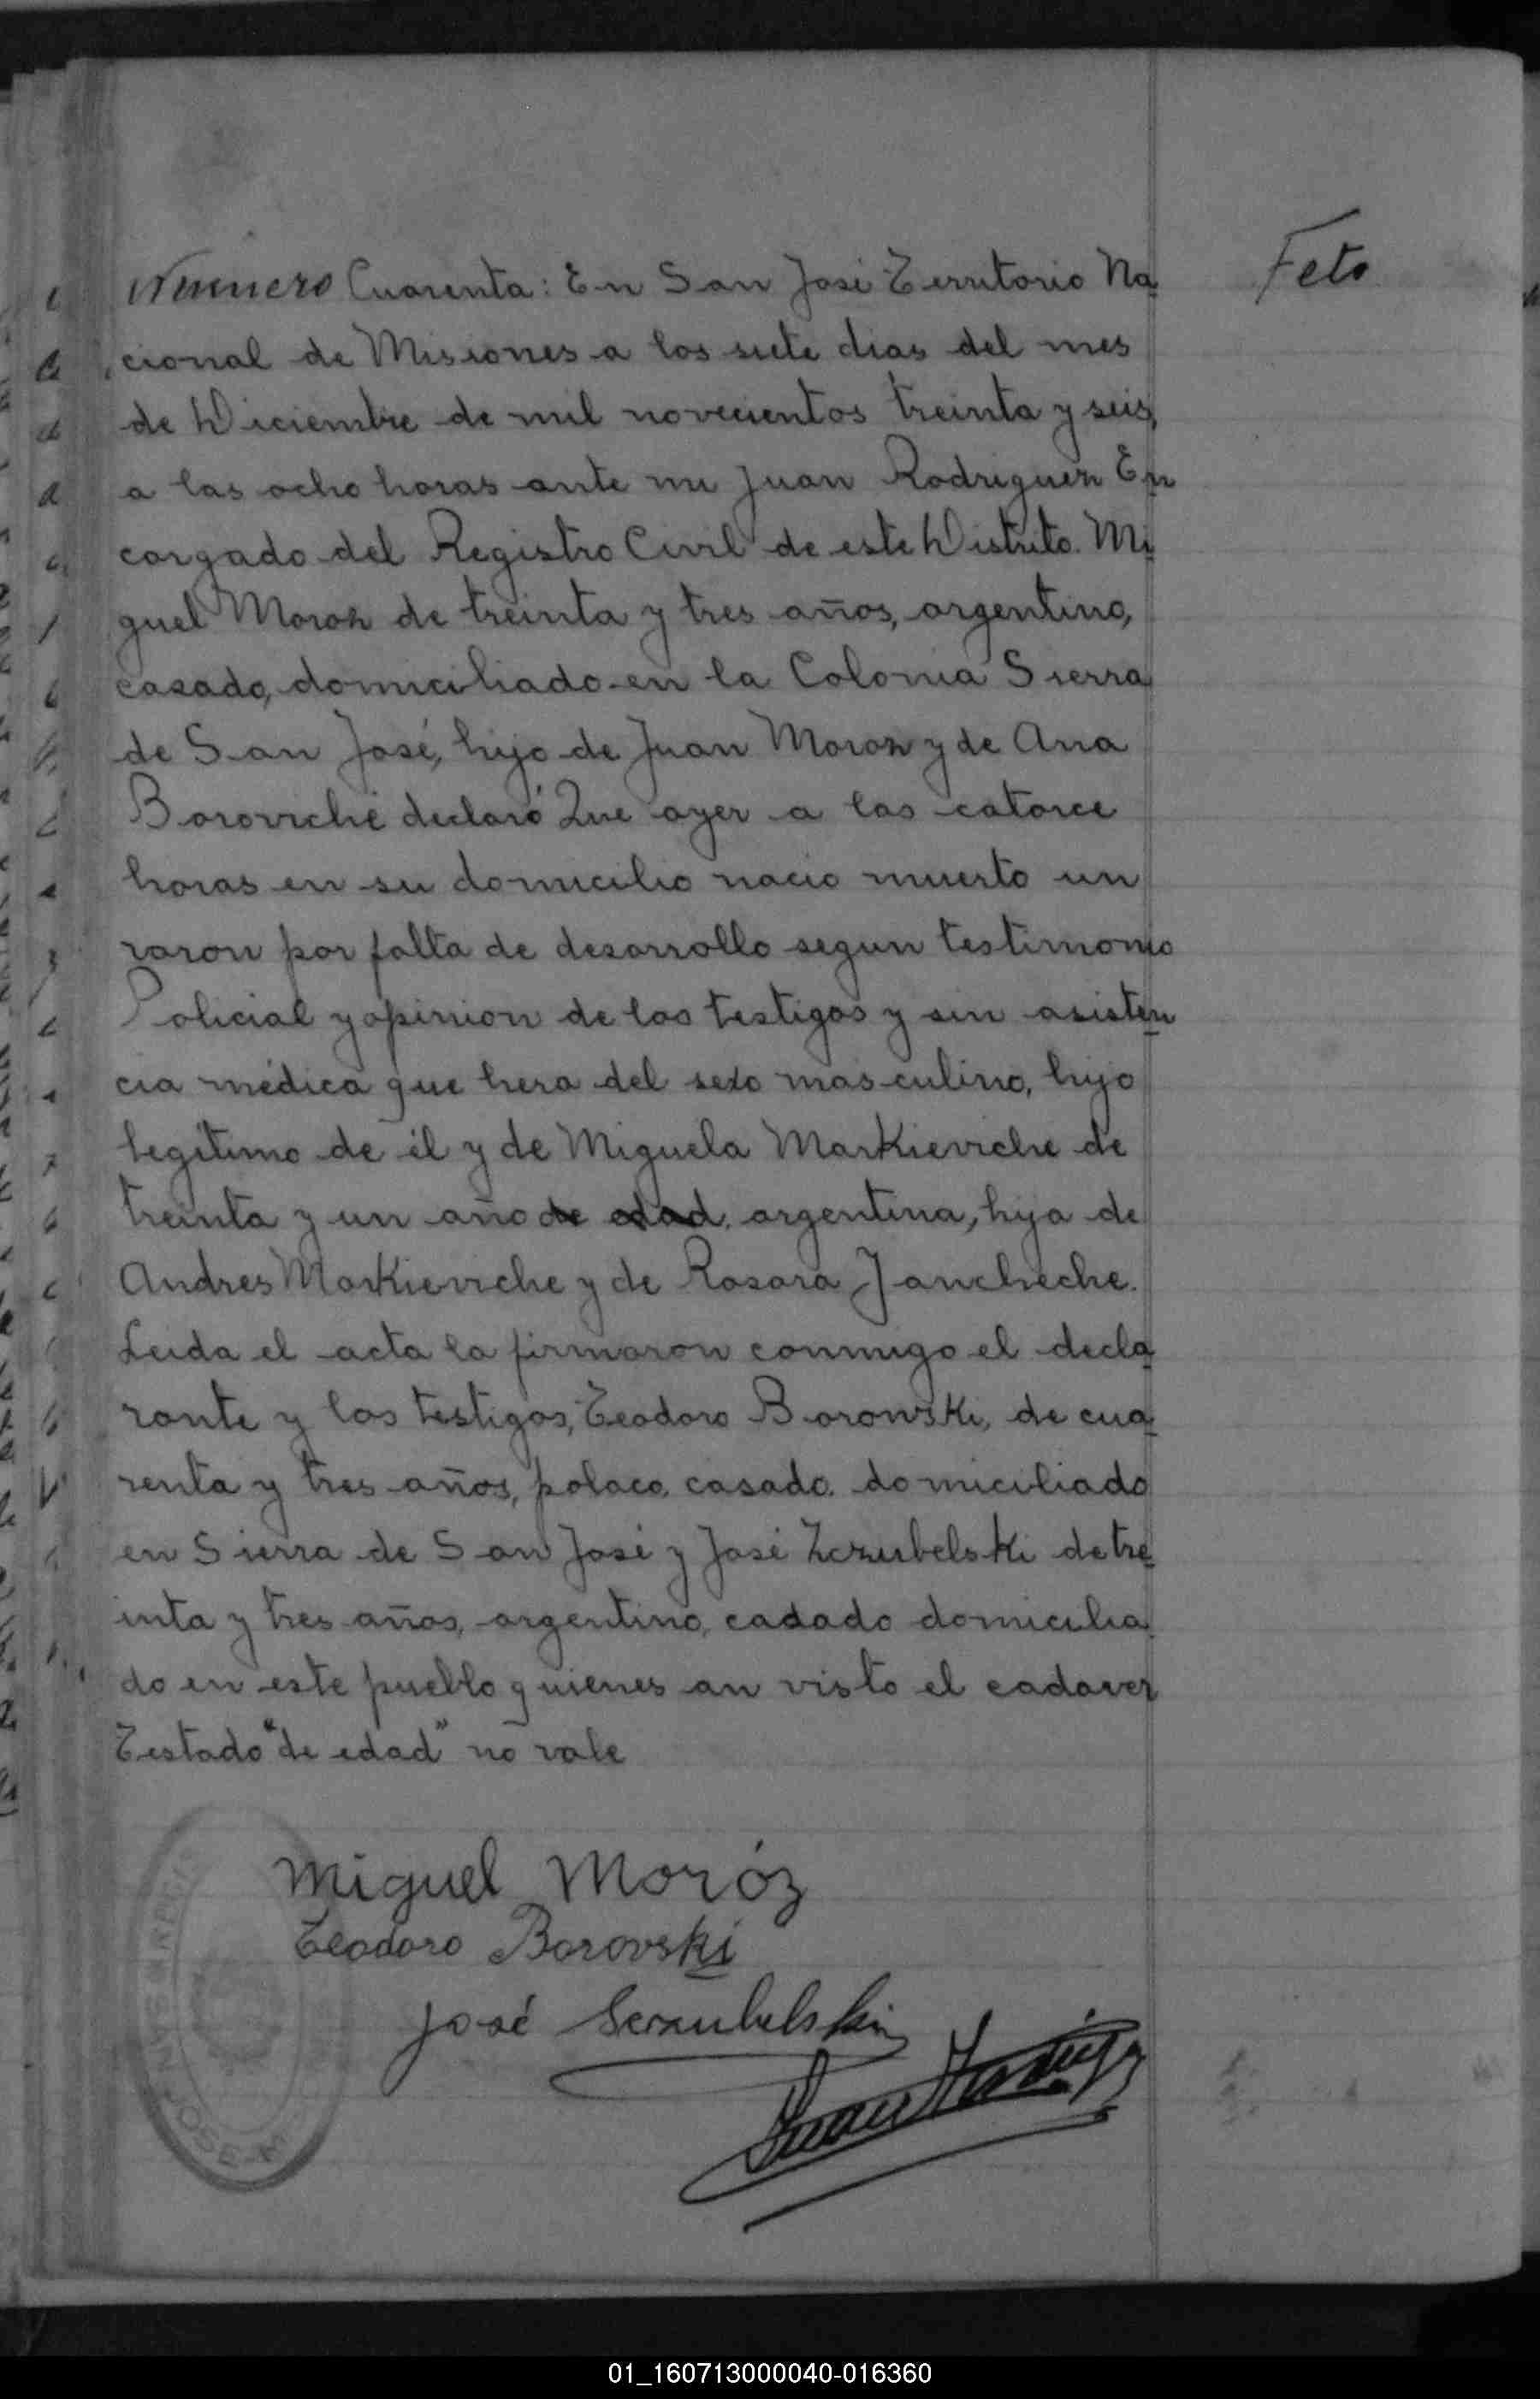 Numero Cuarenta: En San José Territorio Na
Feto
cional de Misiones a los siete dias del mes
de Diciembre de mil novecientos treinta y seis,
a las ocho horas ante mi Juan Rodriguez En
cargado del Registro Civil de este Distrito. Mi
guel Moroz de treinta y tres años, argentino,
casado, domiciliado en la Colonia Sierra
de San José, hijo de Juan Moroz y de Ana
Boroviche declaró Que ayer a las catorce
horas en su domicilio nacio muerto un
varon por falta de desarrollo segun testimonio
Policial y opinion de los testigos y sin asisten
cia médica que hera del sexo masculino, hijo
legítimo de él y de Miguela Markieviche de
treinta y un año de edad, argentina, hija de
Andres Markieviche y de Rosara Jancheche.
Leida el acta la firmaron conmigo el decla
rante y los testigos, Teodoro Borowski, de cua
renta y tres años, polaco, casado, domiciliado
en Sierra de San José y José Zczubelski de tre
inta y tres años, argentino, casado domicilia
do en este pueblo quienes an visto el cadaver
Testado "de edad" no vale
Miguel Moróz
Teodoro Borovski
José Sczubelski
Juan Rodriguez
SAN JOSE
01_160713000040-016360